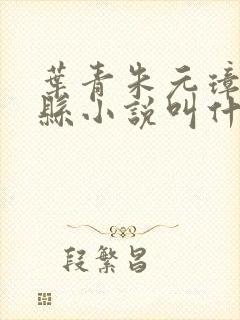 葉青朱元璋
縣小說叫什
段繁昌